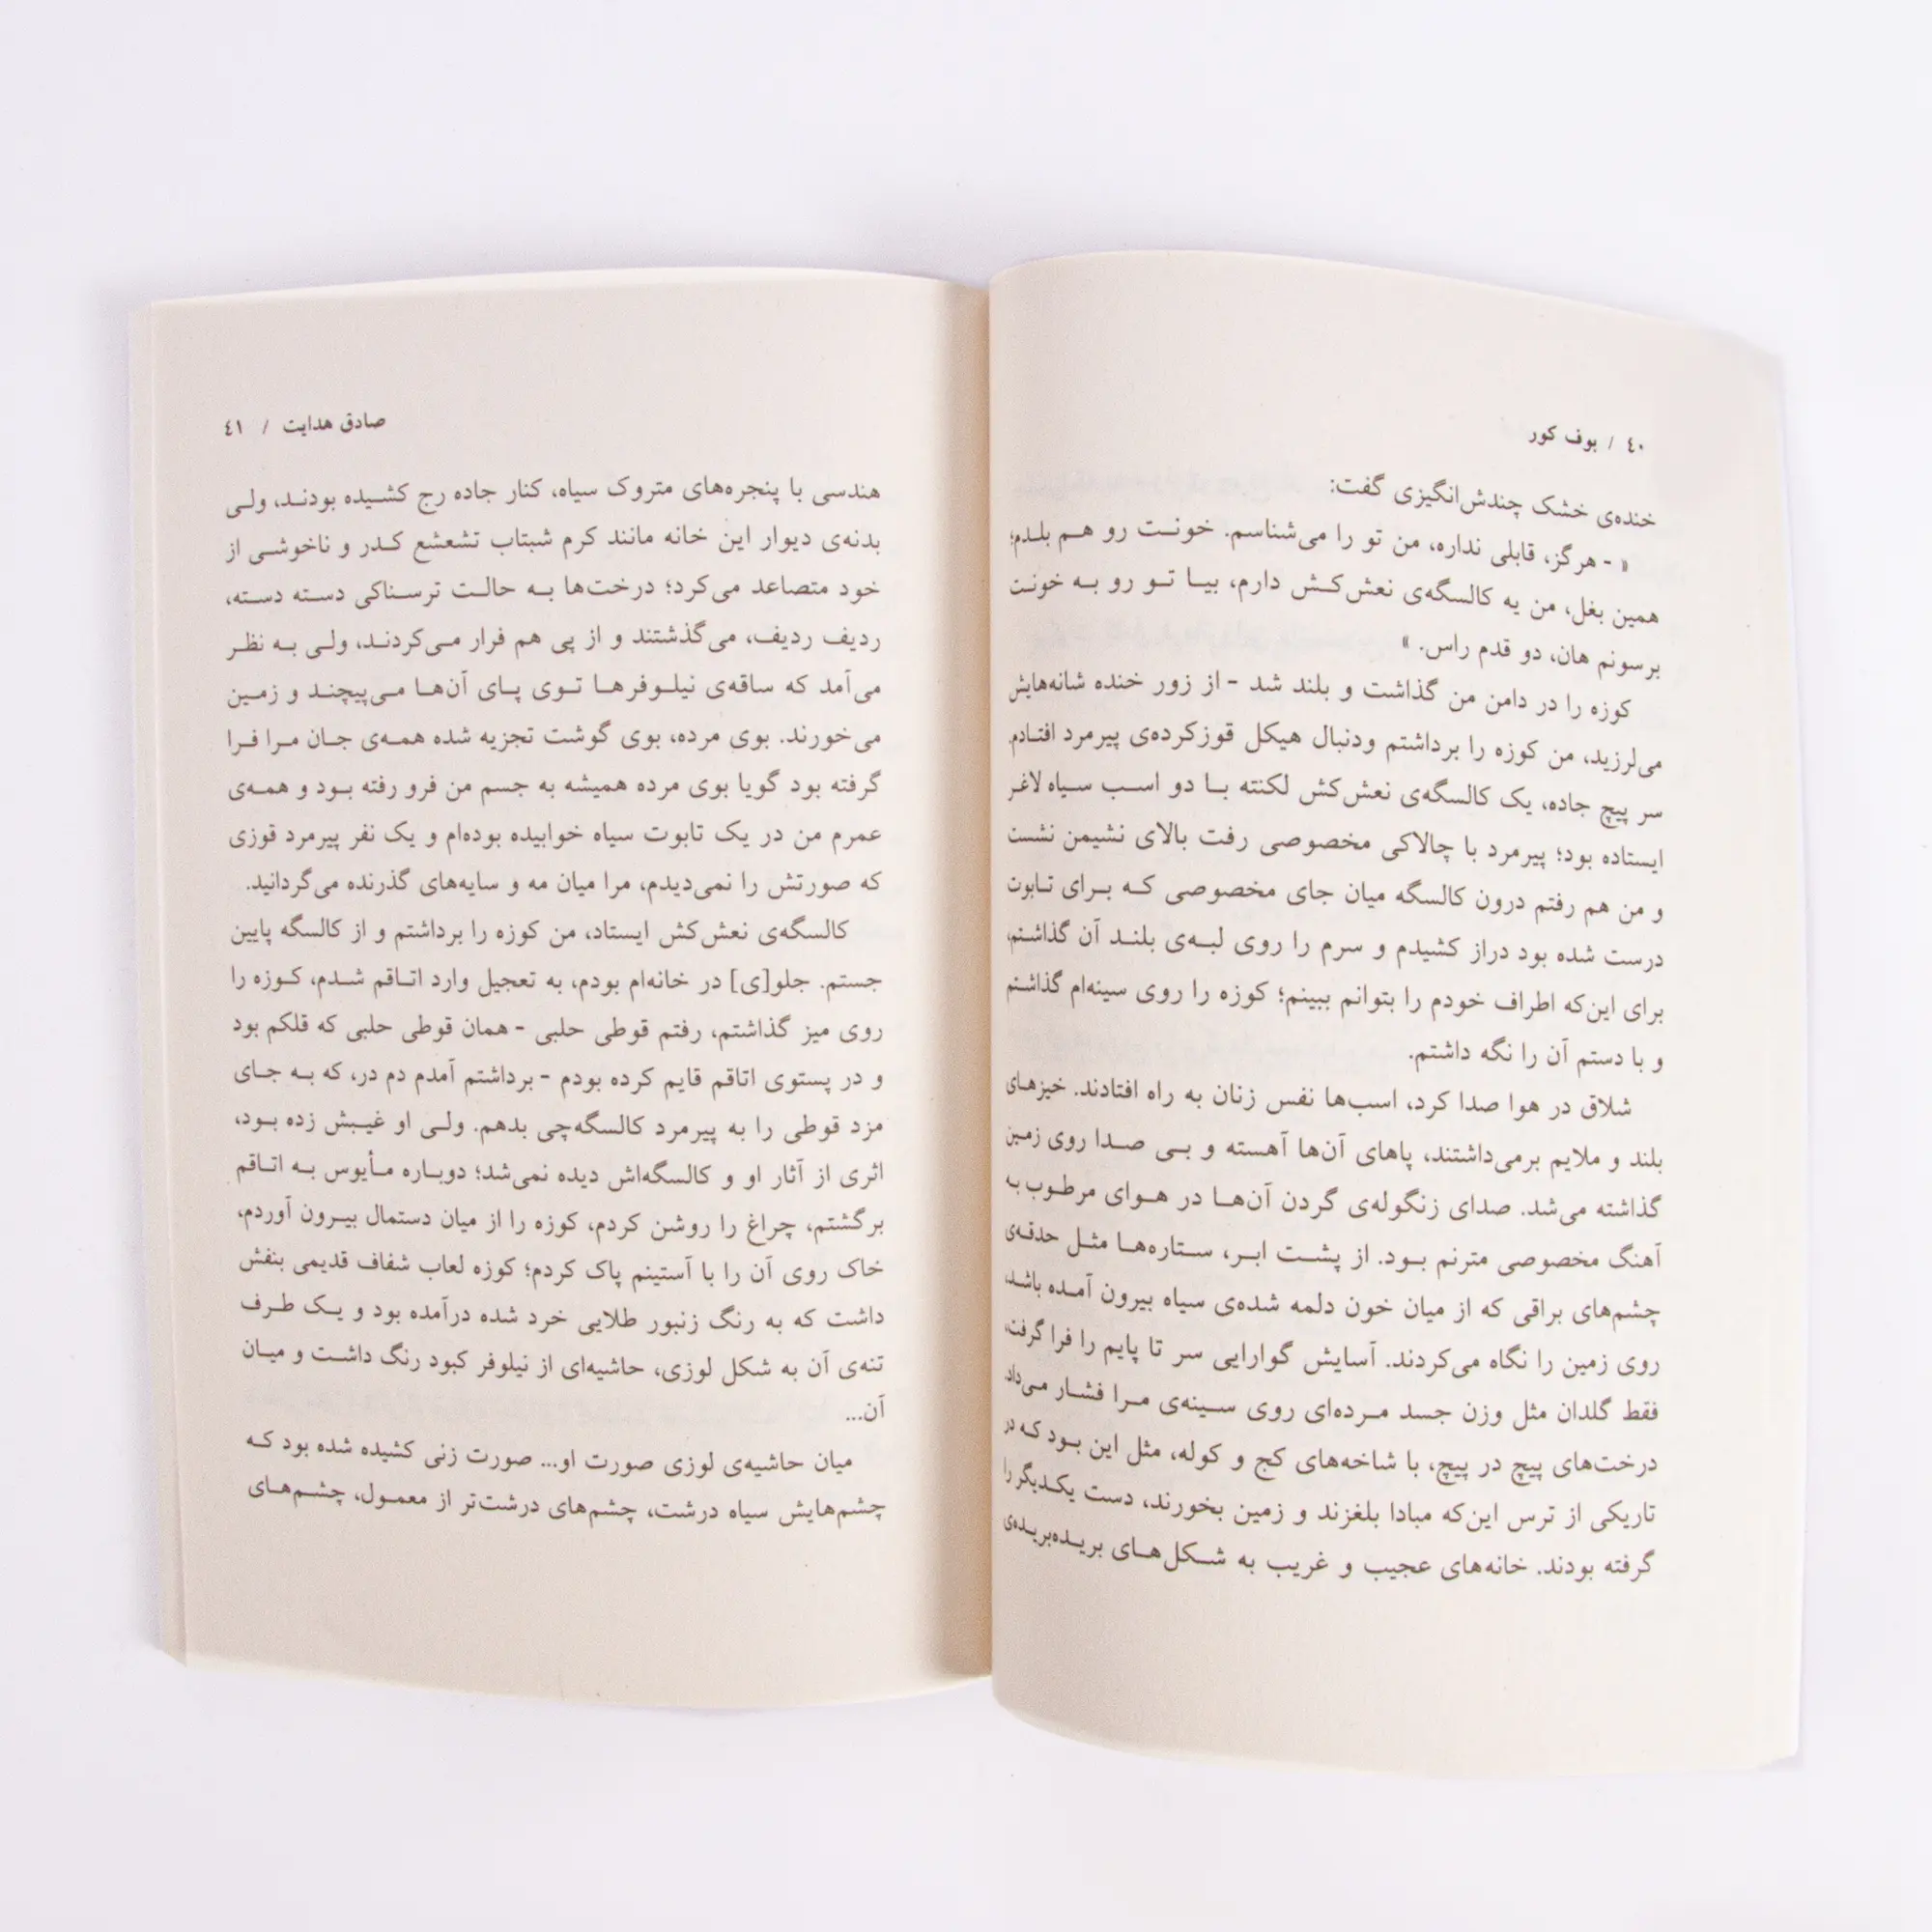 ۴۰ / بوف کور
خنده‌ی خشک چندش‌انگیزی گفت:
« - هرگز، قابلی نداره، من تو را می‌شناسم. خونت رو هم بلدم؛
همین بغل، من یه کالسگه‌ی نعش‌کش دارم، بیا تو رو به خونت
برسونم هان، دو قدم راس. »
کوزه را در دامن من گذاشت و بلند شد - از زور خنده شانه‌هایش
می‌لرزید، من کوزه را برداشتم ودنبال هیکل قوزکرده‌ی پیرمرد افتادم.
سر پیچ جاده، یک کالسگه‌ی نعش‌کش لکنته با دو اسب سیاه لاغر
ایستاده بود؛ پیرمرد با چالاکی مخصوصی رفت بالای نشیمن نشست
و من هم رفتم درون کالسگه میان جای مخصوصی که برای تابوت
درست شده بود دراز کشیدم و سرم را روی لبه‌ی بلند آن گذاشتم،
برای این‌که اطراف خودم را بتوانم ببینم؛ کوزه را روی سینه‌ام گذاشتم
و با دستم آن را نگه داشتم.
شلاق در هوا صدا کرد، اسب‌ها نفس زنان به راه افتادند. خیزهای
بلند و ملایم برمی‌داشتند، پاهای آن‌ها آهسته و بی صدا روی زمین
گذاشته می‌شد. صدای زنگوله‌ی گردن آن‌ها در هوای مرطوب به
آهنگ مخصوصی مترنم بود. از پشت ابر، ستاره‌ها مثل حدقه‌ی
چشم‌های براقی که از میان خون دلمه شده‌ی سیاه بیرون آمده باشد،
روی زمین را نگاه می‌کردند. آسایش گوارایی سر تا پایم را فرا گرفت،
فقط گلدان مثل وزن جسد مرده‌ای روی سینه‌ی مرا فشار می‌داد.
درخت‌های پیچ در پیچ، با شاخه‌های کج و کوله، مثل این بود که در
تاریکی از ترس این‌که مبادا بلغزند و زمین بخورند، دست یکدیگر را
گرفته بودند. خانه‌های عجیب و غریب به شکل‌های بریده‌بریده‌ی
صادق هدایت / ۴۱
هندسی با پنجره‌های متروک سیاه، کنار جاده رج کشیده بودند، ولی
بدنه‌ی دیوار این خانه مانند کرم شبتاب تشعشع کدر و ناخوشی از
خود متصاعد می‌کرد؛ درخت‌ها به حالت ترسناکی دسته دسته،
ردیف ردیف، می‌گذشتند و از پی هم فرار می‌کردند، ولی به نظر
می‌آمد که ساقه‌ی نیلوفرها توی پای آن‌ها می‌پیچند و زمین
می‌خورند. بوی مرده، بوی گوشت تجزیه شده همه‌ی جان مرا فرا
گرفته بود گویا بوی مرده همیشه به جسم من فرو رفته بود و همه‌ی
عمرم من در یک تابوت سیاه خوابیده بوده‌ام و یک نفر پیرمرد قوزی
که صورتش را نمی‌دیدم، مرا میان مه و سایه‌های گذرنده می‌گردانید.
کالسگه‌ی نعش‌کش ایستاد، من کوزه را برداشتم و از کالسگه پایین
جستم. جلو[ی] در خانه‌ام بودم، به تعجیل وارد اتاقم شدم، کوزه را
روی میز گذاشتم، رفتم قوطی حلبی - همان قوطی حلبی که قلکم بود
و در پستوی اتاقم قایم کرده بودم - برداشتم آمدم دم در، که به جای
مزد قوطی را به پیرمرد کالسگه‌چی بدهم. ولی او غیبش زده بود،
اثری از آثار او و کالسگه‌اش دیده نمی‌شد؛ دوباره مأیوس به اتاقم
برگشتم، چراغ را روشن کردم، کوزه را از میان دستمال بیرون آوردم،
خاک روی آن را با آستینم پاک کردم؛ کوزه لعاب شفاف قدیمی بنفش
داشت که به رنگ زنبور طلایی خرد شده درآمده بود و یک طرف
تنه‌ی آن به شکل لوزی، حاشیه‌ای از نیلوفر کبود رنگ داشت و میان
آن...
میان حاشیه‌ی لوزی صورت او... صورت زنی کشیده شده بود که
چشم‌هایش سیاه درشت، چشم‌های درشت‌تر از معمول، چشم‌های